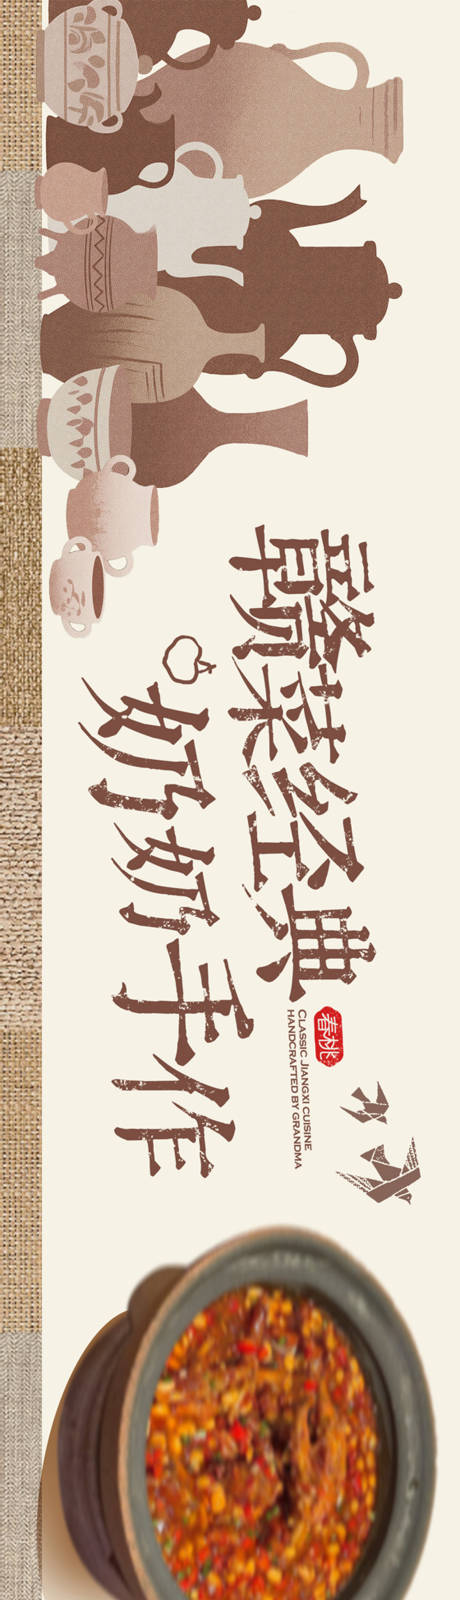 赣菜经典
奶奶手作
春桃
CLASSIC JIANGXI CUISINE
HANDCRAFTED BY GRANDMA